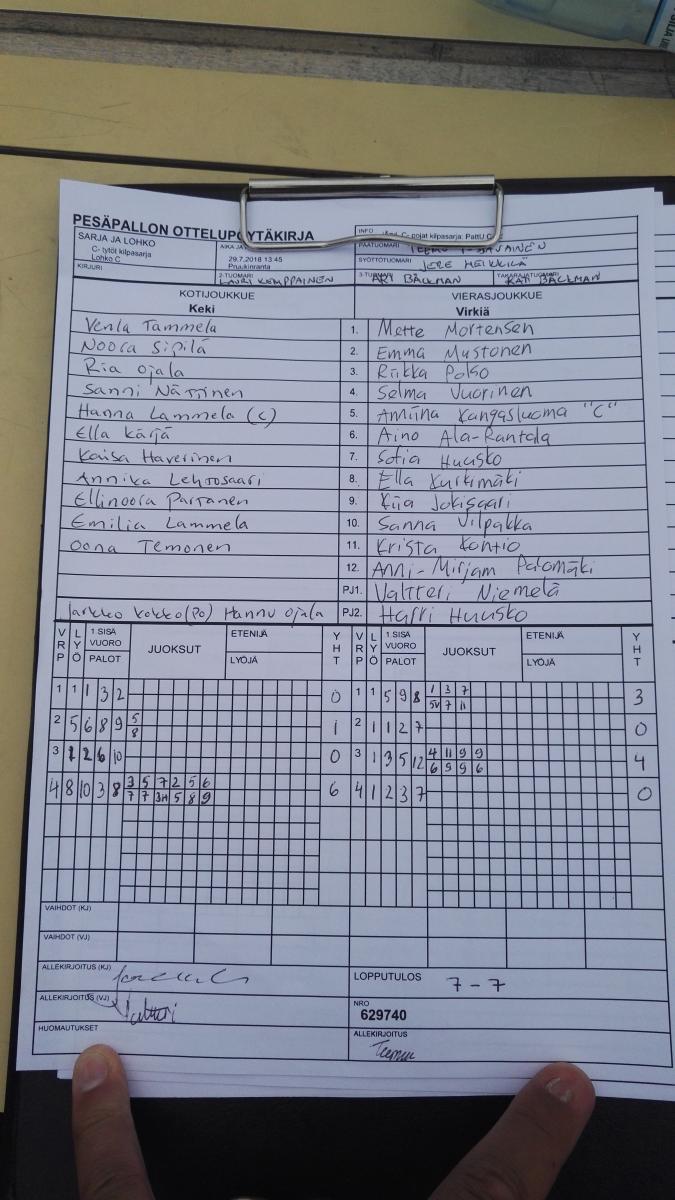 PESÄPALLON OTTELUPÖYTÄKIRJA
INFO C- pojat kilpasarja: PattU C
SARJA JA LOHKO
C- tytöt kilpasarja
Lohko C
AIKA JA
29.7.2018 13:45
Pruukinranta
PÄÄTUOMARI
SYÖTTÖTUOMARI JERE HEIKKILÄ
KIRJURI
2-TUOMARI LAURI KEMPPAINEN
3-TUOMARI ARI BÄCKMAN
TAKARAJATUOMARI KATI BÄCKMAN
KOTIJOUKKUE VIERASJOUKKUE
Keki Virkiä
Venla Tammela 1. Mette Mortensen
Noora Sipilä 2. Emma Mustonen
Ria Ojala 3. Riikka Polso
Sanni Närrinen 4. Selma Vuorinen
Hanna Lammela (C) 5. Anniina Kangasluoma "C"
Ella Kärjä 6. Aino Ala-Rantala
Kaisa Haverinen 7. Sofia Huusko
Annika Lehtosaari 8. Ella Kurkimäki
Ellinoora Partanen 9. Kiia Jokisaari
Emilia Lammela 10. Sanna Vilpakka
Oona Temonen 11. Krista Kontio
12. Anni-Mirjam Palomäki
PJ1. Valtteri Niemelä
Jarkko Kokko (PO) Hannu Ojala PJ2. Harri Huusko
VRP LYÖ 1.SISÄ VUORO PALOT JUOKSUT ETENIJÄ LYÖJÄ YHT VRP LYÖ 1.SISÄ VUORO PALOT JUOKSUT ETENIJÄ LYÖJÄ YHT
1 1 1 3 2 0 1 1 5 9 8 1 3 7 3
5V 7 11
2 5 6 8 9 5 1 2 1 1 2 7 0
8
3 1 2 6 10 0 3 1 3 5 12 4 11 9 9 4
6 9 9 6
4 8 10 3 8 3 5 7 2 5 6 6 4 1 2 3 7 0
7 7 3H 5 8 9
VAIHDOT (KJ)
VAIHDOT (VJ)
ALLEKIRJOITUS (KJ)
LOPPUTULOS 7-7
ALLEKIRJOITUS (VJ) Valtteri
NRO
629740
HUOMAUTUKSET
ALLEKIRJOITUS
Teemu